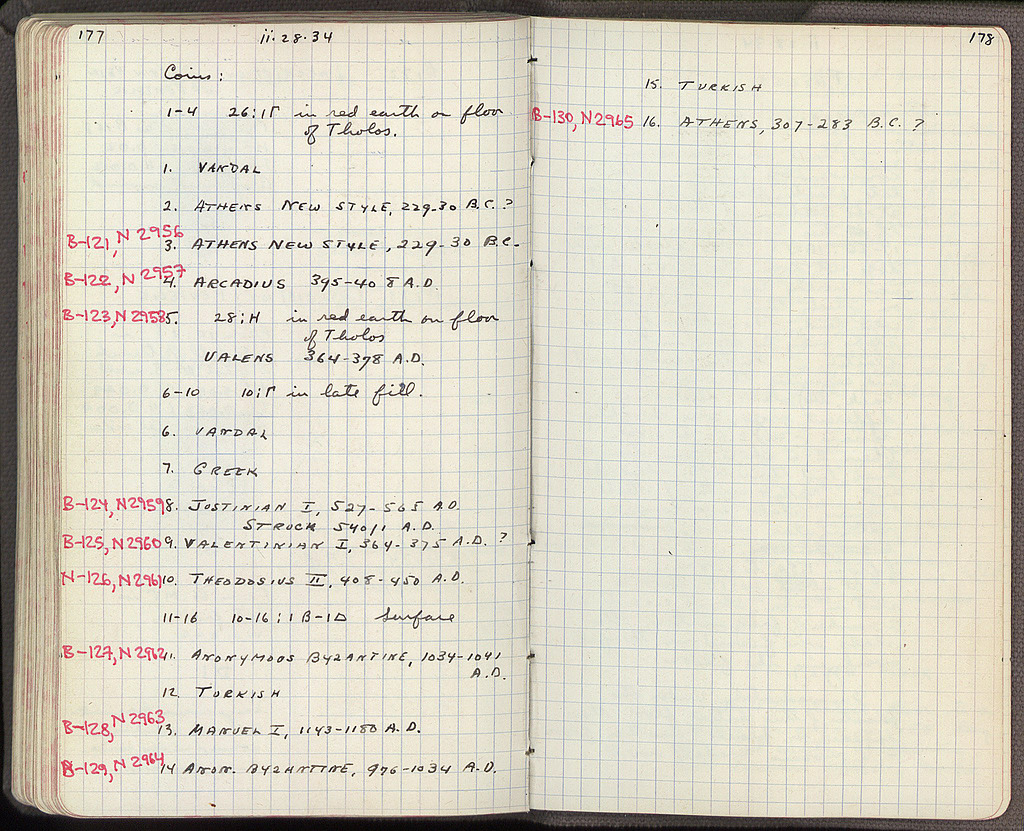 177
ii·28·34
Coins:
1-4 26:ΙΓ in red earth on floor
of Tholos.
1. VANDAL
2. ATHENS NEW STYLE, 229-30 B.C. ?
B-121, N 2956 3. ATHENS NEW STYLE, 229-30 B.C.
B-122, N 2957 4. ARCADIUS 395-408 A.D.
B-123, N 2958 5. 28:H in red earth on floor
of Tholos
VALENS 364-378 A.D.
6-10 10:Γ in late fill.
6. VANDAL
7. GREEK
B-124, N 2959 8. JUSTINIAN I, 527-565 A.D.
STRUCK 540/1 A.D.
B-125, N 2960 9. VALENTINIAN I, 364-375 A.D. ?
N-126, N 2961 10. THEODOSIUS II, 408-450 A.D.
11-16 10-16:1B-1Δ Surface
B-127, N 2962 11. ANONYMOUS BYZANTINE, 1034-1041
A.D.
12. TURKISH
B-128, N 2963 13. MANUEL I, 1143-1180 A.D.
B-129, N 2964 14 ANON. BYZANTINE, 976-1034 A.D.
178
15. TURKISH
B-130, N 2965 16. ATHENS, 307-283 B.C. ?